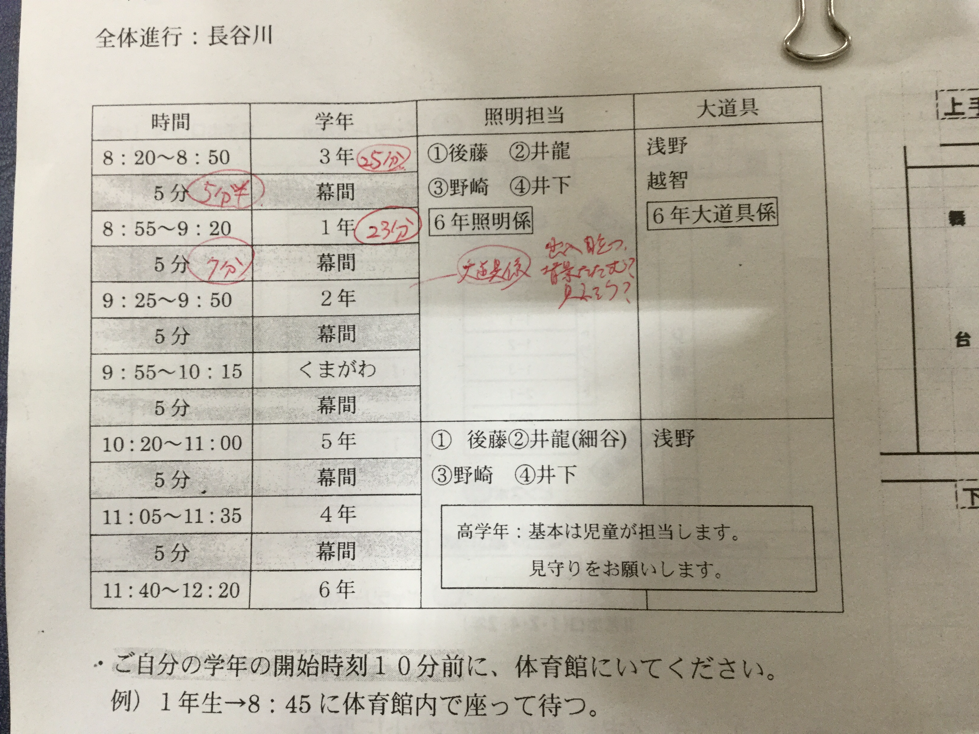 全体進行：長谷川
時間 学年 照明担当 大道具
8：20～8：50 3年 25分 ①後藤 ②井龍 浅野
5分 5分半 幕間 ③野崎 ④井下 越智
8：55～9：20 1年 23分 6年照明係 6年大道具係
5分 7分 幕間 大道具係
9：25～9：50 2年
5分 幕間
9：55～10：15 くまがわ
5分 幕間
10：20～11：00 5年 ① 後藤②井龍(細谷) 浅野
5分 幕間 ③野崎 ④井下
11：05～11：35 4年
高学年：基本は児童が担当します。
5分 幕間
見守りをお願いします。
11：40～12：20 6年
・ご自分の学年の開始時刻１０分前に、体育館にいてください。
例）１年生→8：45に体育館内で座って待つ。
上手
台
下